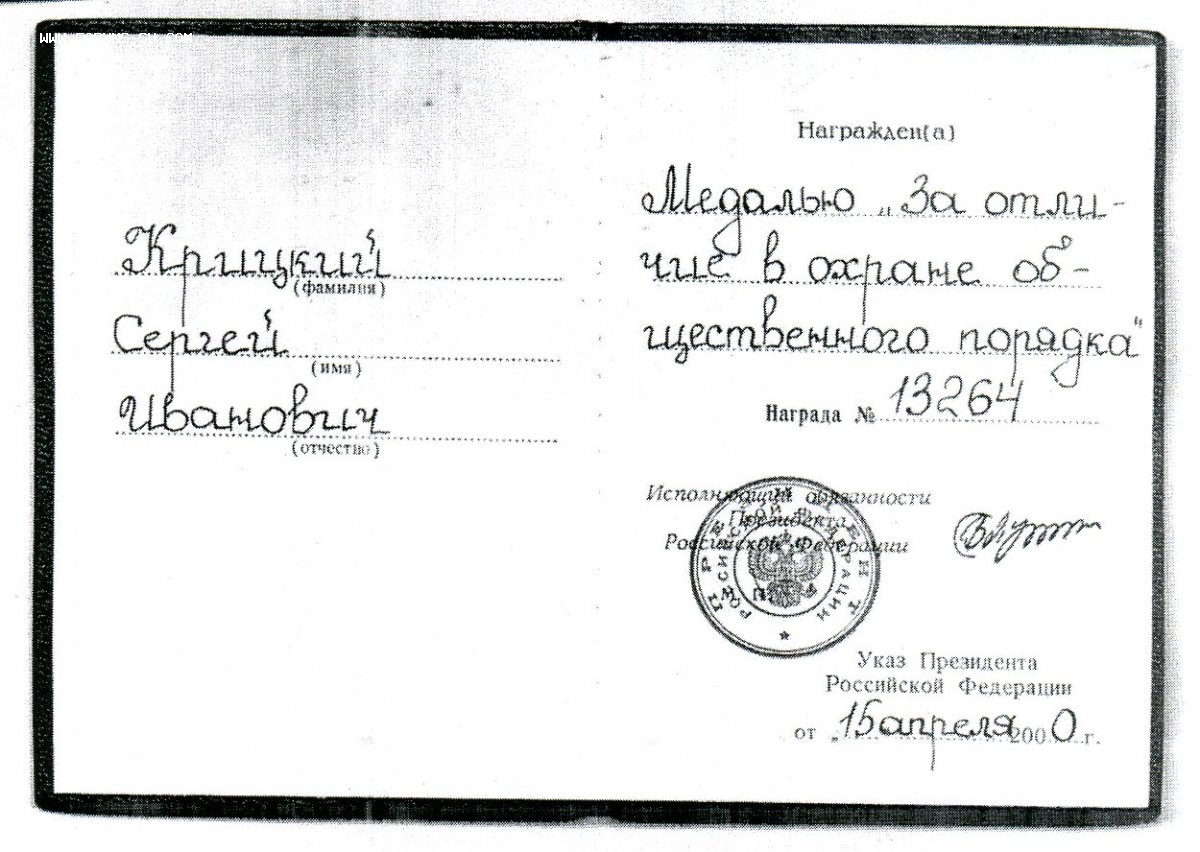 Крицкий
(фамилия)
Сергей
(имя)
Иванович
(отчество)
Награжден(а)
Медалью „За отли-
чие в охране об-
щественного порядка“
Награда № 13264
Исполняющий обязанности
Президента
Российской Федерации
ПРЕЗИДЕНТ
РОССИЙСКОЙ ФЕДЕРАЦИИ
М. П.
Указ Президента
Российской Федерации
от „15 апреля 2000 г.